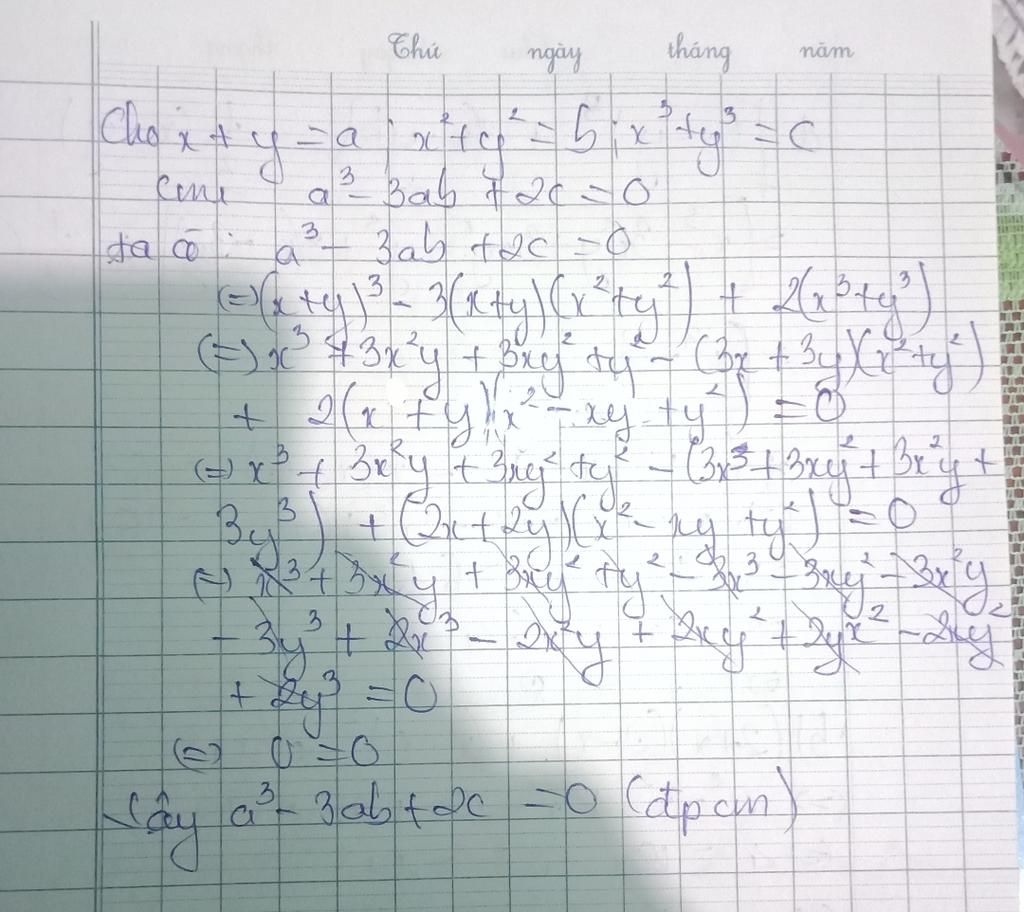 Thứ ngày tháng năm
Cho x + y = a ; x² + y² = b ; x³ + y³ = c
cm: a³ - 3ab + 2c = 0
ta có : a³ - 3ab + 2c = 0
(=) (x + y)³ - 3(x + y)(x² + y²) + 2(x³ + y³)
(=) x³ + 3x²y + 3xy² + y² - (3x + 3y)(x² + y²)
+ 2(x + y)(x² - xy + y²) = 0
(=) x³ + 3x²y + 3xy² + y² - (3x³ + 3xy² + 3x²y +
3y³) + (2x + 2y)(x² - xy + y²) = 0
(=) x³ + 3x²y + 3xy² + y² - 3x³ - 3xy² - 3x²y
- 3y³ + 2x³ - 2x²y + 2xy² + 2yx² - 2xy²
+ 2y³ = 0
(=) 0 = 0
Vậy a³ - 3ab + 2c = 0 (đpcm)